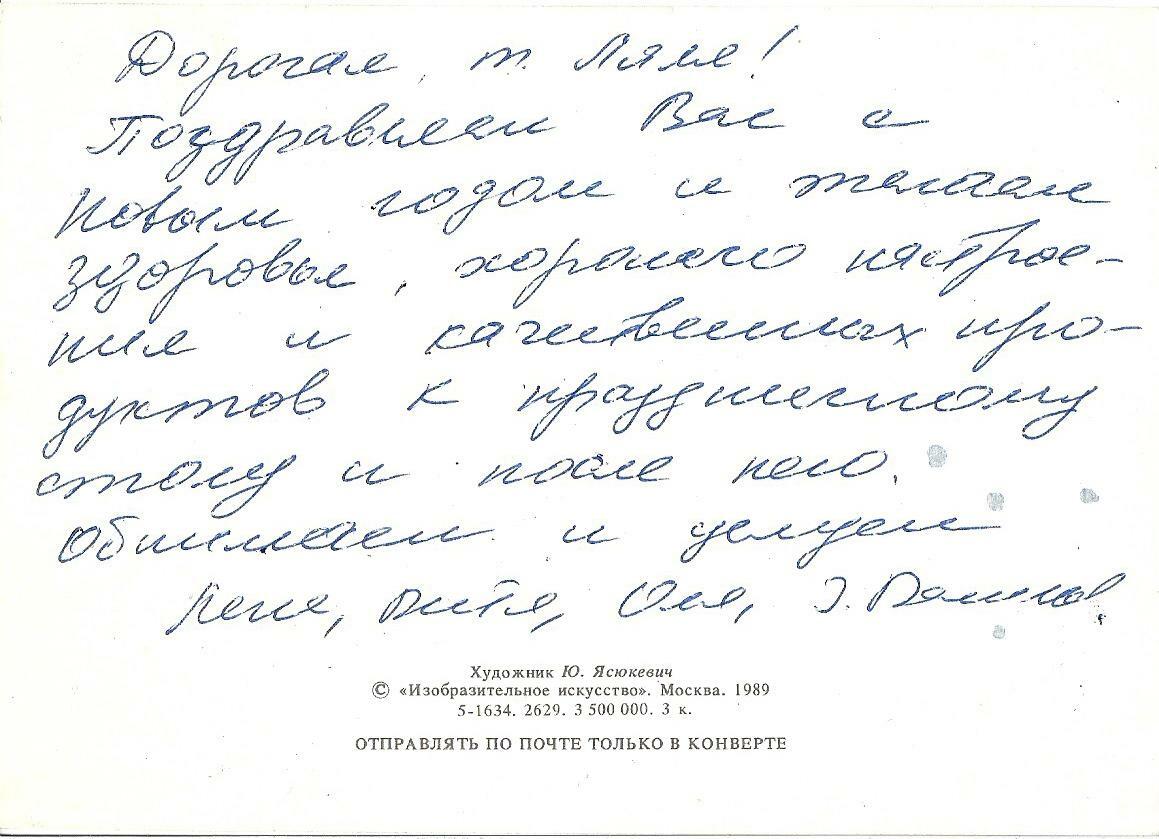 Дорогая, т. Ляля!
Поздравляем Вас с
Новым годом и желаем
здоровья, хорошего настрое-
ния и качественных про-
дуктов к праздничному
столу и после него.
Обнимаем и целуем
Лена, Витя, Оля,
Художник Ю. Ясюкевич
© «Изобразительное искусство». Москва. 1989
5-1634. 2629. 3 500 000. 3 к.
ОТПРАВЛЯТЬ ПО ПОЧТЕ ТОЛЬКО В КОНВЕРТЕ